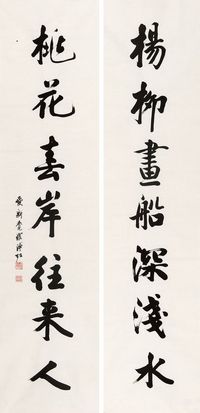 楊柳畫船深淺水
桃花春岸往来人
愛新覺羅溥佐